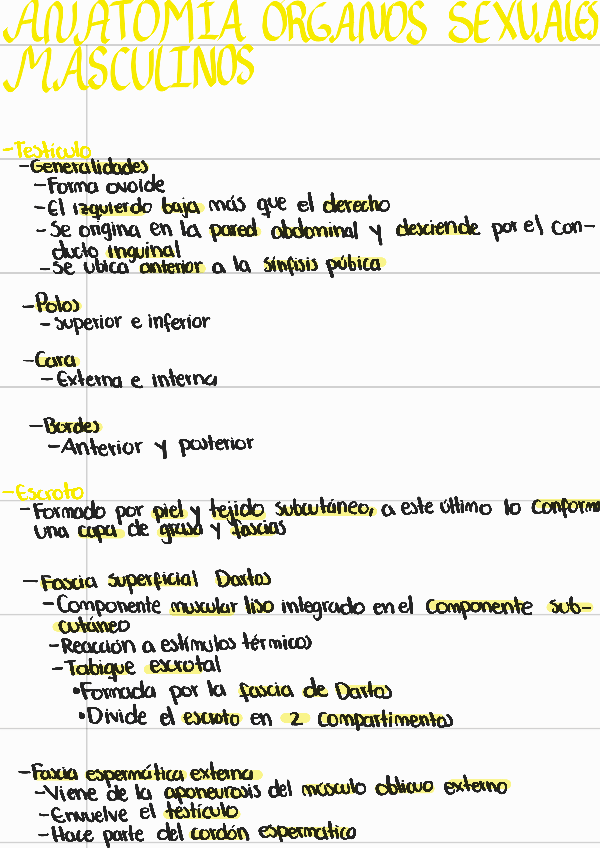 ANATOMÍA ORGANOS SEXUALES
MASCULINOS
-Testículo
-Generalidades
-Forma ovoide
-El izquierdo baja más que el derecho
-Se origina en la pared abdominal y desciende por el con-
ducto inguinal
-Se ubica anterior a la sínfisis púbica
-Polos
-superior e inferior
-Cara
-Externa e interna
-Bordes
-Anterior y posterior
-Escroto
-Formado por piel y tejido subcutáneo, a este último lo conforma
una capa de grasa y fascias
-Fascia superficial Dartos
-Componente muscular liso integrado en el componente sub-
cutáneo
-Reacción a estímulos térmicos
-Tabique escrotal
•Formada por la fascia de Dartos
•Divide el escroto en 2 compartimentos
-Fascia espermática externa
-Viene de la aponeurosis del músculo oblicuo externo
-Envuelve el testículo
-Hace parte del cordón espermático